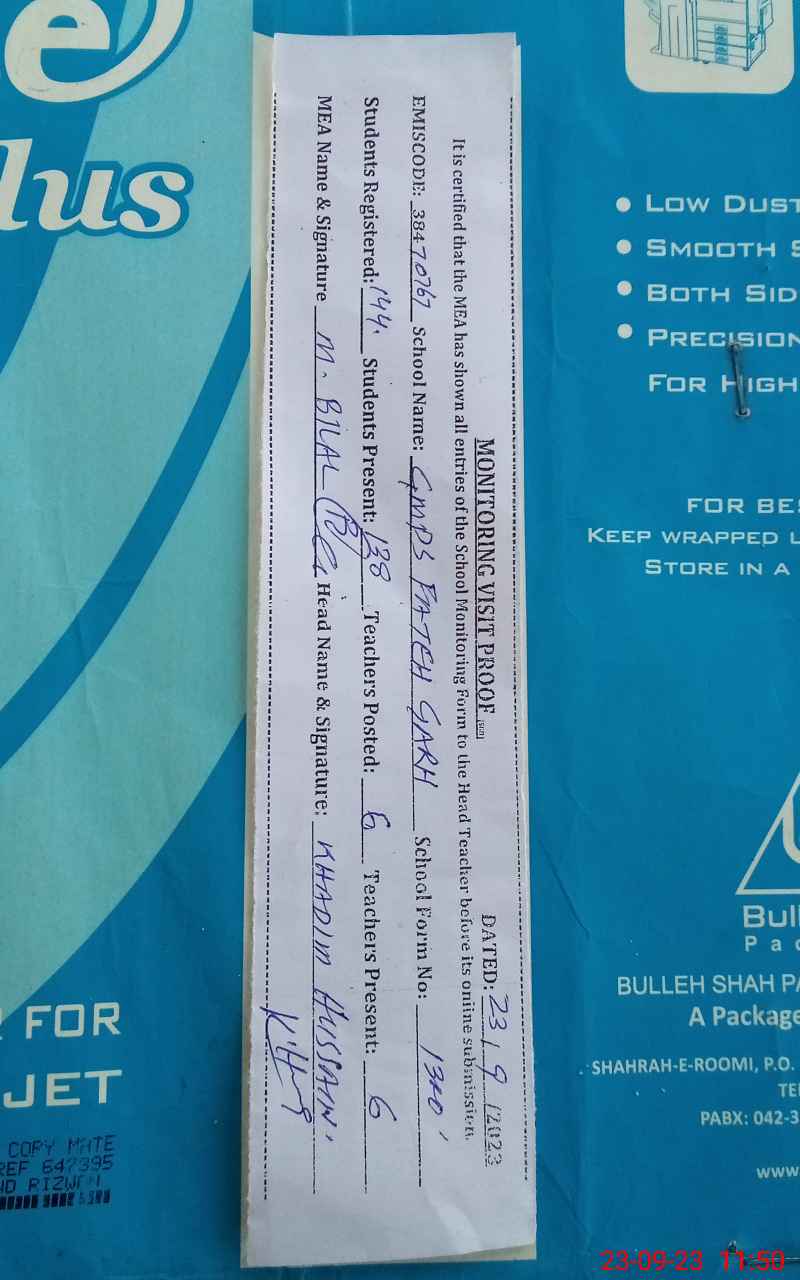 e
lus
MONITORING VISIT PROOF DATED: 23/9/2023
It is certified that the MEA has shown all entries of the School Monitoring Form to the Head Teacher before its online submission.
EMISCODE: 38470767 School Name: GMPS FATEH GARH School Form No:
Students Registered: 144 Students Present: 138 Teachers Posted: 6 Teachers Present: 6
MEA Name & Signature M. BILAL Head Name & Signature: KHADIM HUSSAIN
LOW DUST
SMOOTH S
BOTH SID
PRECISION
FOR HIGH
FOR BES
KEEP WRAPPED U
STORE IN A
Bull
Pac
BULLEH SHAH PA
A Package
SHAHRAH-E-ROOMI, P.O.
TE
PABX: 042-3
www
FOR
JET
COPY MATE
REF 647395
ND RIZWAN
23-09-23 11:50